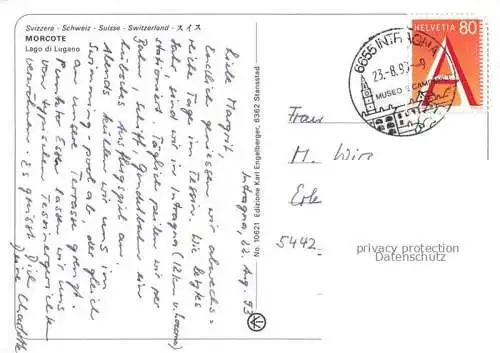 Svizzera - Schweiz - Suisse - Switzerland - スイス
MORCOTE
Lago di Lugano
Intragna, 22. Aug. 93
Liebe Margrit,
Endlich geniessen wir abwechs=
reiche Tage im Tessin. Wie letztes
Jahr sind wir in Intragna (12 km v. Locarno)
stationiert. Täglich peilen wir per
Bahn, Schiff, Gondelbahn ein
hübsches Ausflugsziel an.
Abends kühlen wir uns im
Swimmingpool ab der gleich
an unsere Terrasse grenzt.
punkto Essen lassen wir uns
von typischen Tessinergerichten
verwöhnen. Es grüsst Dich
Deine Charlotte
No. 10621 Edizione Karl Engelberger, 6362 Stansstad
6655 INTRAGNA
23.-8.93-9
MUSEO
HELVETIA 80
A
Frau
M. Wir
Erle
5442
privacy protection
Datenschutz